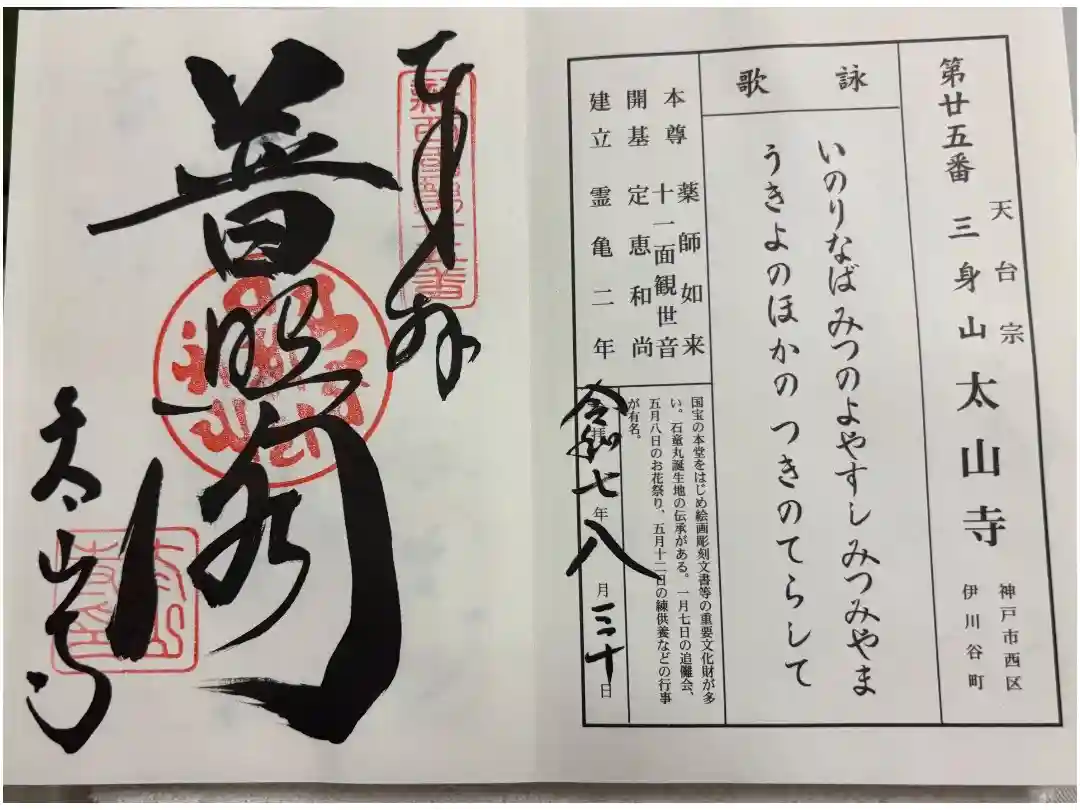 第廿五番 三身山 太山寺
天台宗
神戸市西区
伊川谷町
詠歌
いのりなば みつのよやすし みつみやま
うきよのほかの つきのてらして
本尊 薬師如来
十一面観世音
開基 定恵和尚
建立 霊亀二年
国宝の本堂をはじめ絵画彫刻文書等の重要文化財が多
い。石童丸誕生地の伝承がある。一月七日の追儺会、
五月八日のお花祭り、五月十二日の練供養などの行事
が有名。
令和七年八月三十日
奉拝
普照閣
太山寺